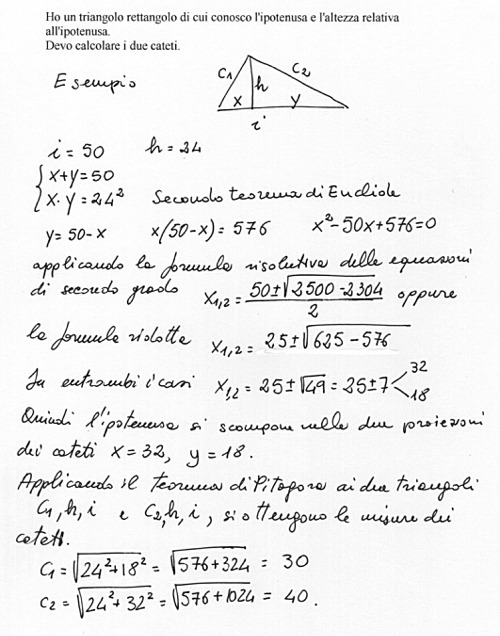 Ho un triangolo rettangolo di cui conosco l'ipotenusa e l'altezza relativa
all'ipotenusa.
Devo calcolare i due cateti.
Esempio
C1 C2
h
x y
i
i = 50 h = 24
{ x+y = 50
{ x·y = 24² Secondo teorema di Euclide
y = 50-x x(50-x) = 576 x²-50x+576=0
applicando la formula risolutiva delle equazioni
di secondo grado x1,2 = (50±√(2500-2304))/2 oppure
la formula ridotta x1,2 = 25±√(625-576)
In entrambi i casi x1,2 = 25±√49 = 25±7 < 32
18
Quindi l'ipotenusa si scompone nelle due proiezioni
dei cateti x = 32, y = 18.
Applicando il teorema di Pitagora ai due triangoli
C1,h,i e C2,h,i, si ottengono le misure dei
cateti.
C1 = √(24²+18²) = √(576+324) = 30
C2 = √(24²+32²) = √(576+1024) = 40.